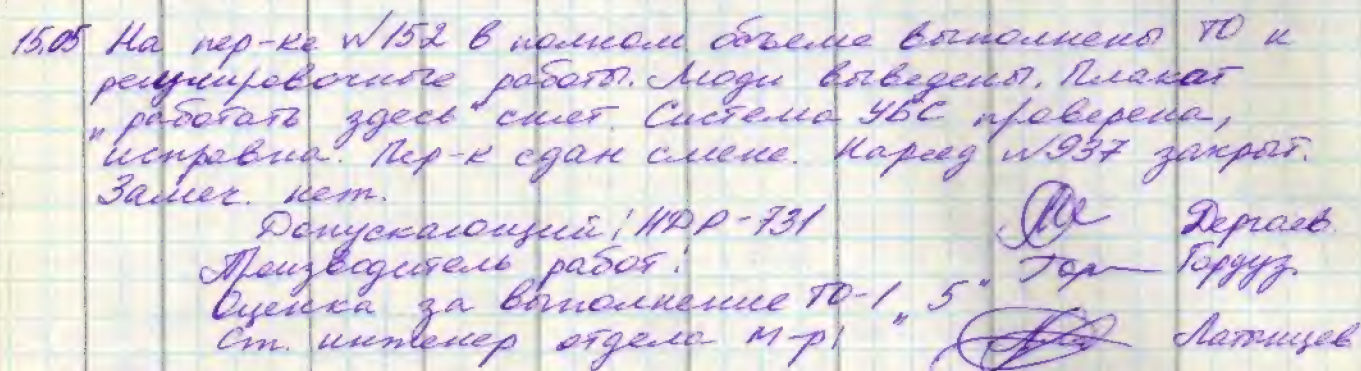 15.05 На пер-ке №152 в полном объеме выполнены ТО и
регулировочные работы. Люди выведены. Плакат
"работать здесь" снят Система УБС проверена,
исправна. Пер-к сдан смене. Наряд №937 закрыт.
Замеч. нет.
Допускающий: НДР-731 Дергаев
Производитель работ: Гор Гордуз
Оценка за выполнение ТО-1 "5"
Ст. инженер отдела м-р Латышцев